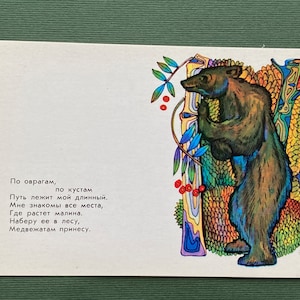 По оврагам,
по кустам
Путь лежит мой длинный.
Мне знакомы все места,
Где растет малина.
Наберу ее в лесу,
Медвежатам принесу.